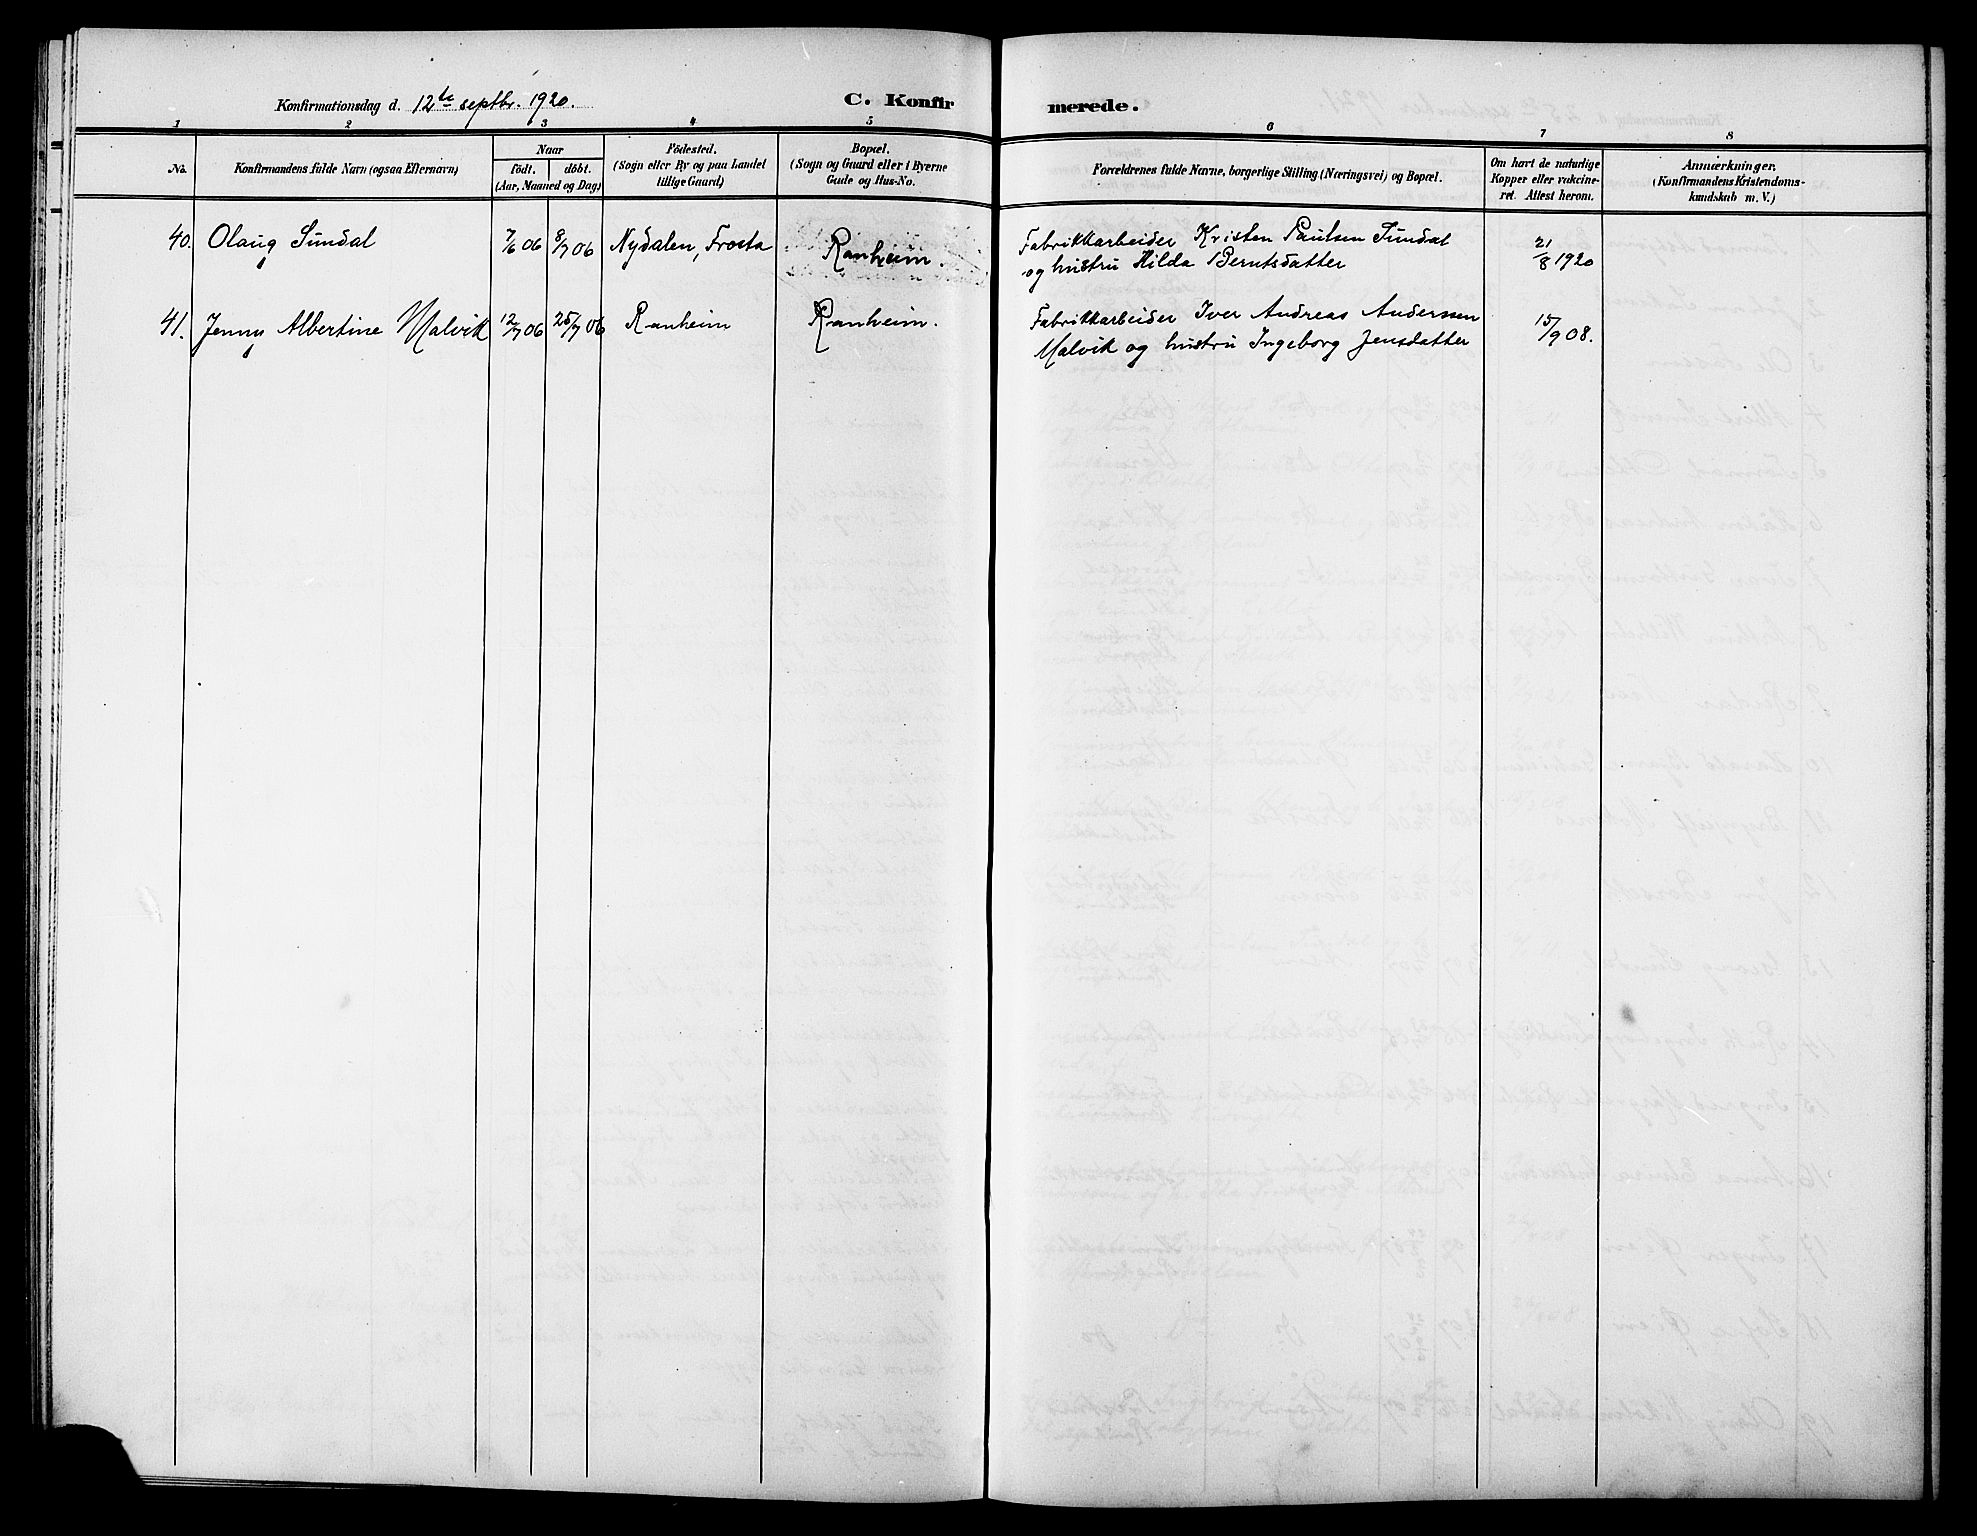 Konfirmationsdag d. 12te septbr. 1920.
C. Konfir
merede.
1 2 3 4 5 6 7 8
No.
Konfirmandens fulde Navn (ogsaa Efternavn)
Naar
födt. döbt.
(Aar, Maaned og Dag)
Födested.
(Sogn eller By og paa Landet
tillige Gaard)
Bopæl.
(Sogn og Gaard eller i Byerne
Gade og Hus-No.
Forældrenes fulde Navne, borgerlige Stilling (Næringsvei) og Bopæl.
Om havt de naturlige
Kopper eller vakcine-
ret. Attest herom.
Anmærkninger.
(Konfirmandens Kristendoms-
kundskab m. V.)
40. Olaug Sundal 7/6 06 8/7 06 Nydalen, Frosta Ranheim. Fabrikkarbeider Kristen Paulsen Sundal 21/8 1920
og hustru Hilda Berntsdatter
41. Jenny Albertine Malvik 12/7 06 25/7 06 Ranheim Ranheim. Fabrikkarbeider Iver Andreas Anderssen 15/9 08.
Malvik og hustru Ingeborg Jensdatter